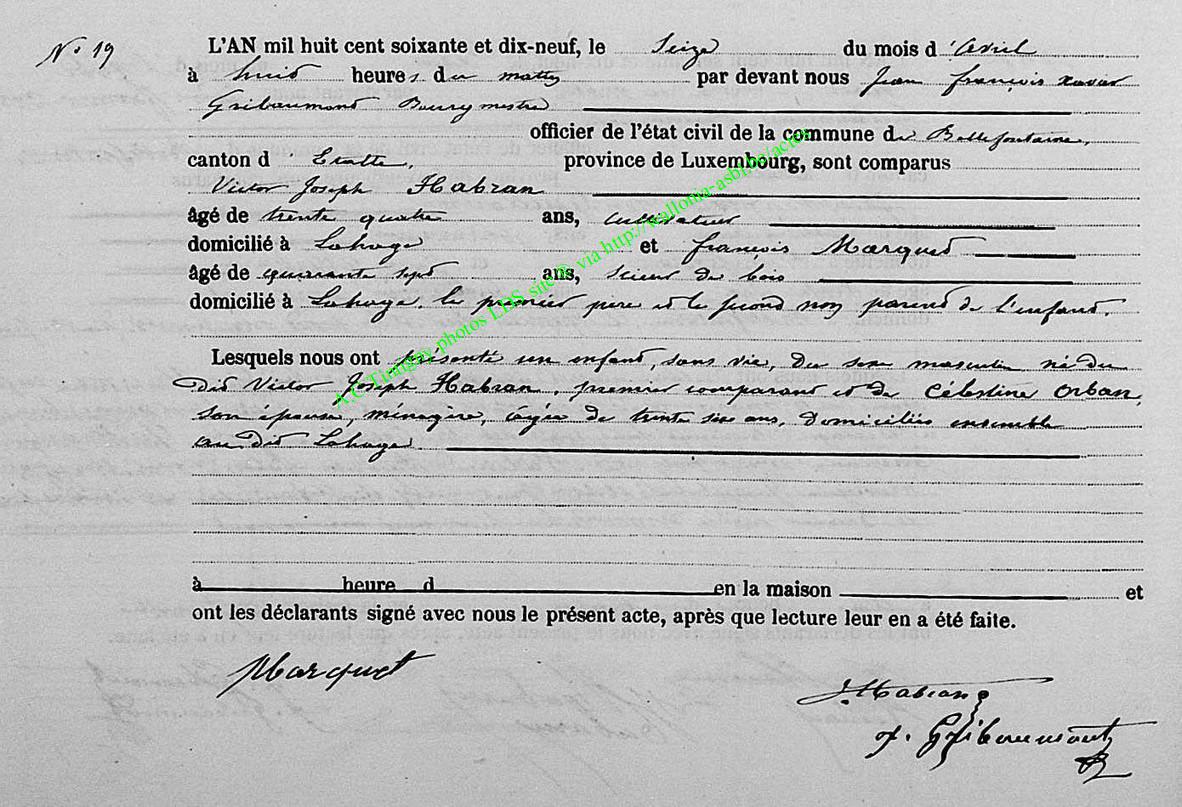 N° 19
L'AN mil huit cent soixante et dix-neuf, le Seize du mois d'avril
à huit heures du matin par devant nous Jean françois xavier
Gribaumont Bourgmestre
officier de l'état civil de la commune de Bellefontaine,
canton d'Etalle, province de Luxembourg, sont comparus
Victor Joseph Habran
âgé de trente quatre ans, cultivateur
domicilié à Lahage et françois Marquet
âgé de quarante sept ans, scieur de bois
domicilié à Lahage, le premier père et le second non parent de l'enfant.
Lesquels nous ont présenté un enfant, sans vie, du sexe masculin né du
dit Victor Joseph Habran, premier comparant et de Célestine Orban,
son épouse, ménagère, âgée de trente six ans, domiciliés ensemble
au dit Lahage
à heure d en la maison et
ont les déclarants signé avec nous le présent acte, après que lecture leur en a été faite.
Marquet
J. Habran
x. Gribaumont
photos LDS site © via http://wallonia-asbl.be/actes